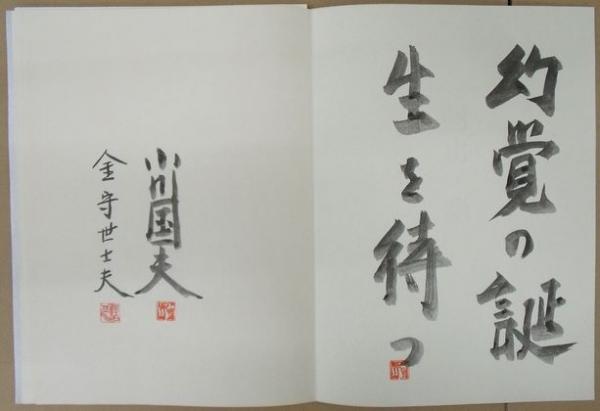 幻覚の誕
生を待つ
小川国夫
金守世士夫